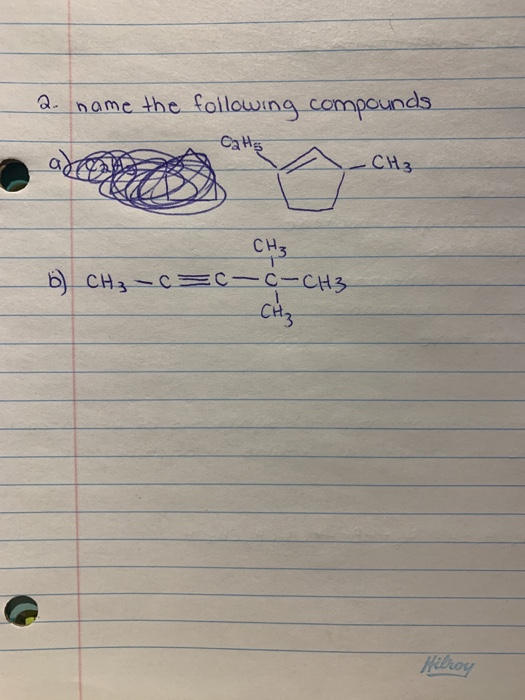 2. name the following compounds
a) C2H5 - CH3
CH3
b) CH3 - C ≡ C - C - CH3
CH3
Hilroy